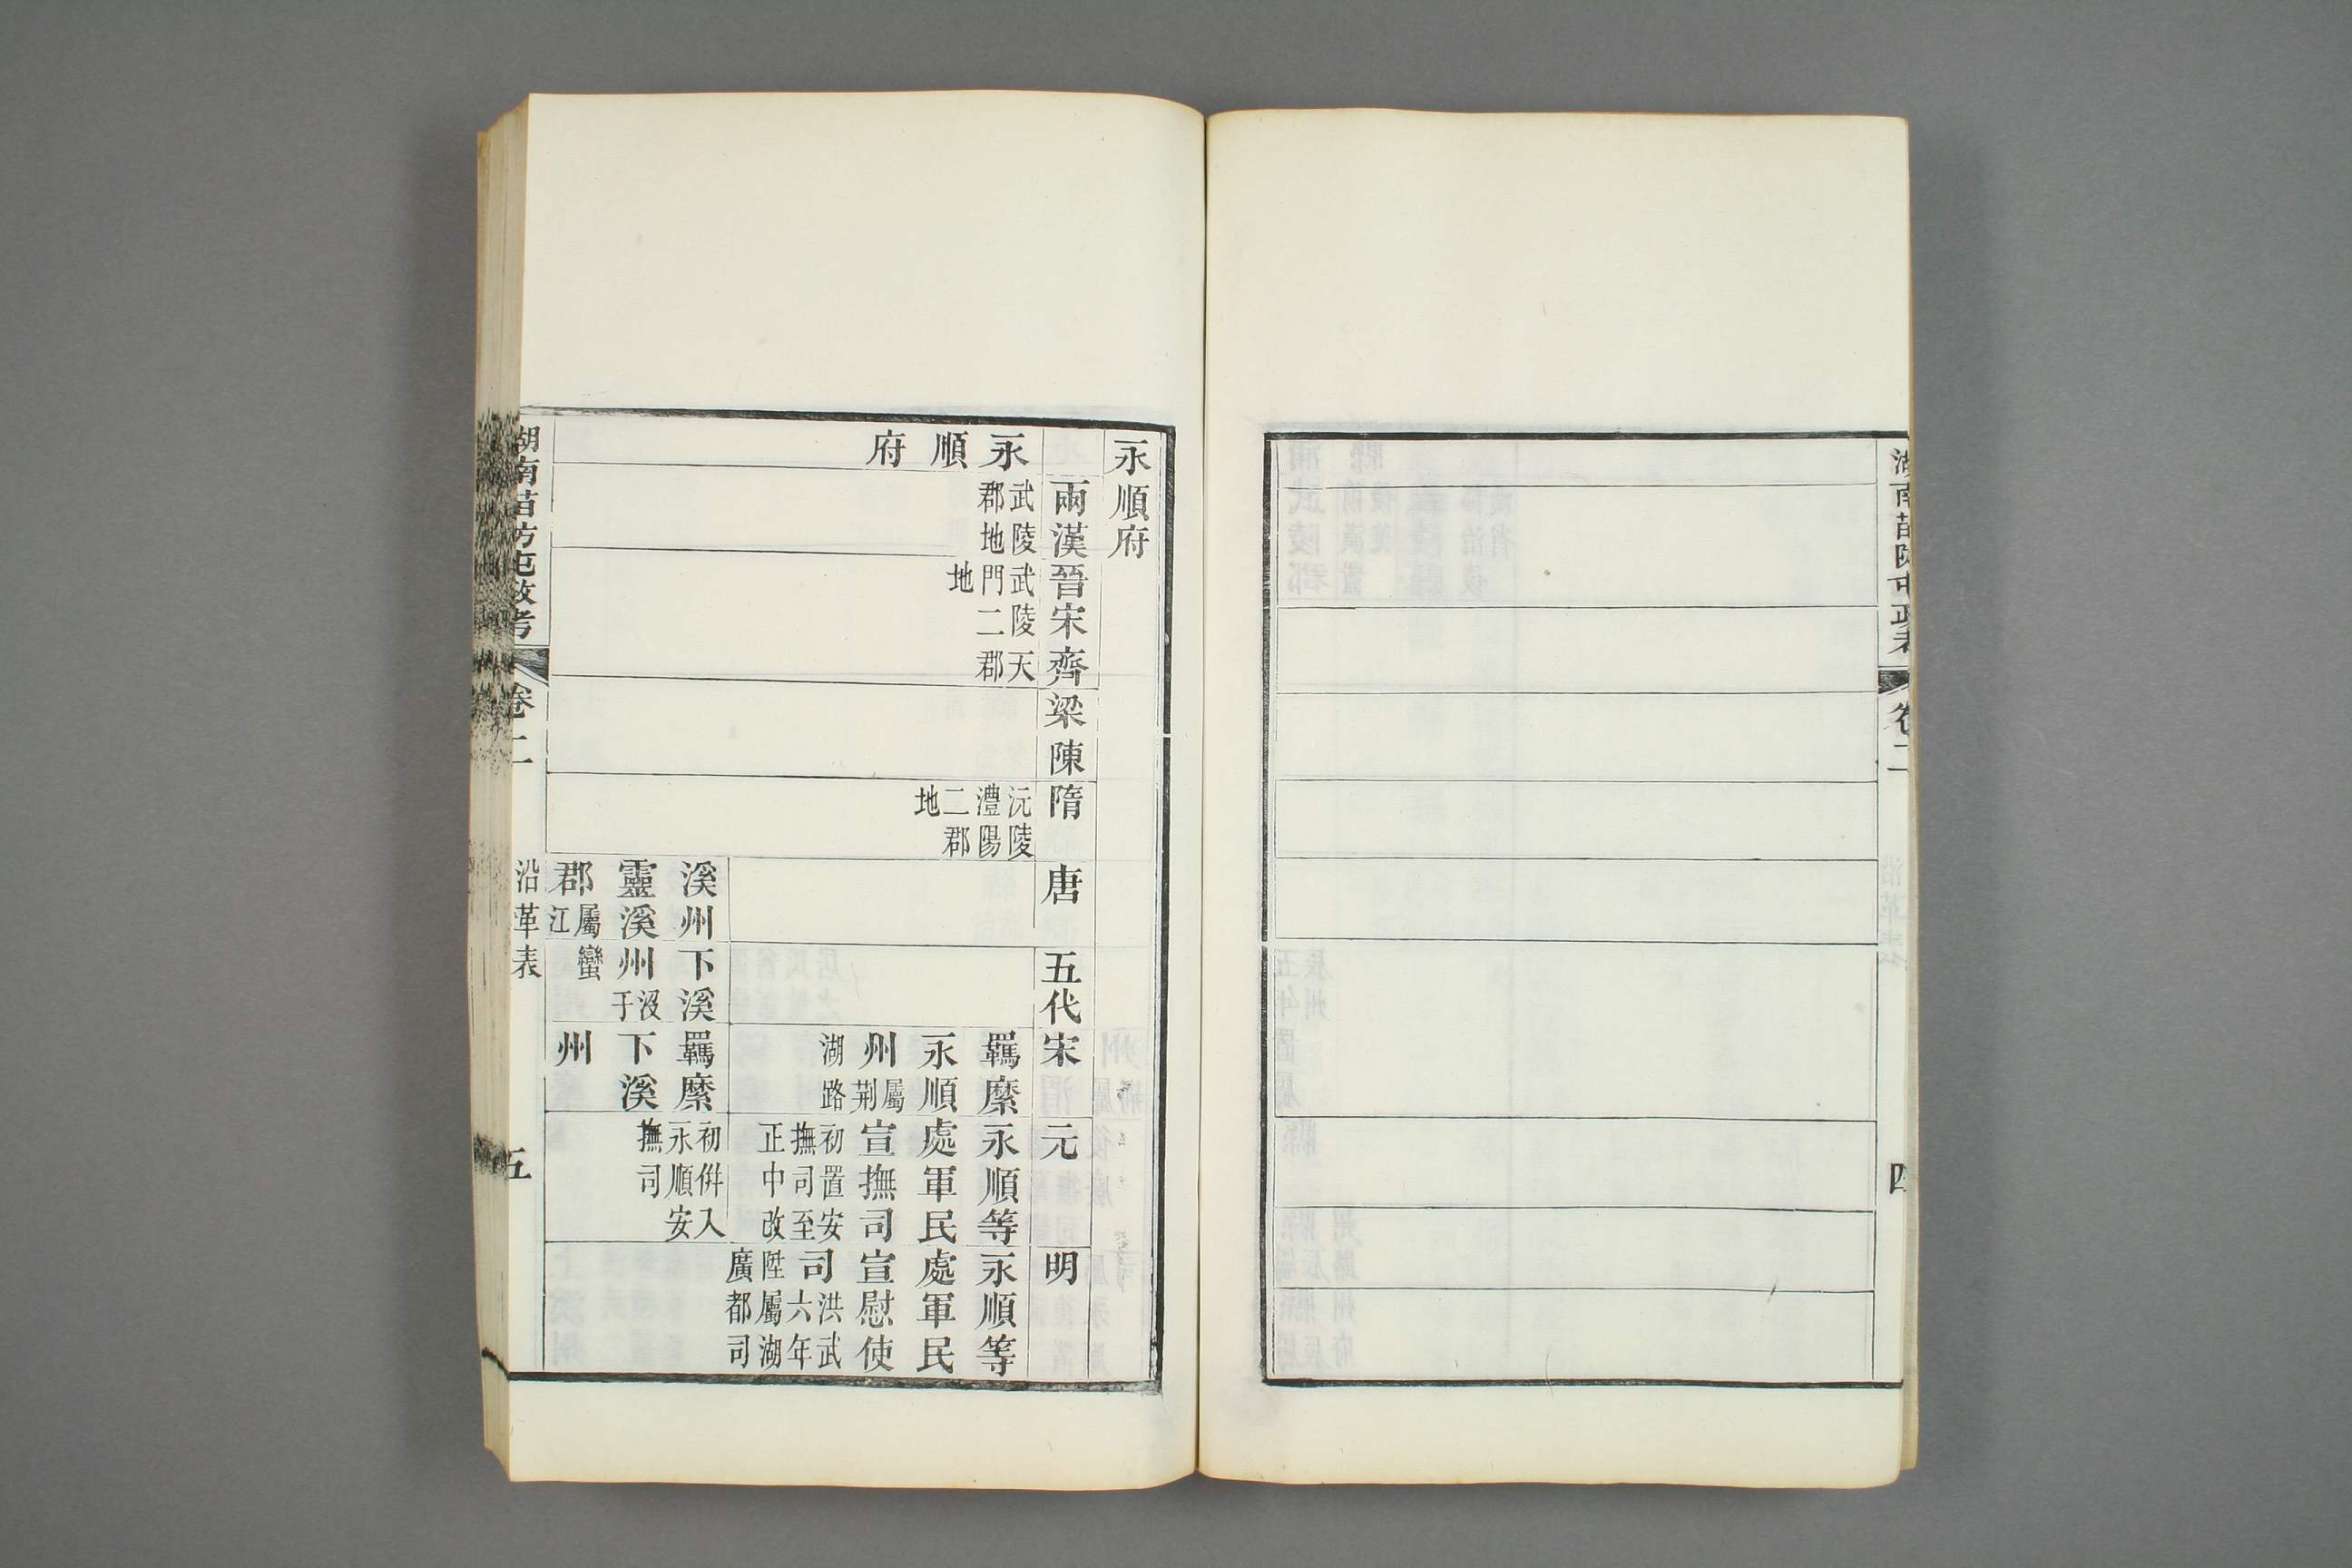 湖南苗防屯政考
卷二
沿革表
四
永順府
兩漢
晉宋齊
梁陳
隋
唐
五代
宋
元
明
永順府
武陵
郡地
武陵天
門二郡
地
沅陵
澧陽
二郡
地
羈縻
永順
州屬
荆
湖路
永順等
處軍民
宣撫司
初置安
撫司至
正中改
永順等
處軍民
宣慰使
司洪武
六年
陞屬湖
廣都司
溪州
靈溪
郡屬
江
下溪
州沒
于
蠻
羈縻
下溪
州
初併入
永順安
撫司
湖南苗防屯政考
卷二
沿革表
五